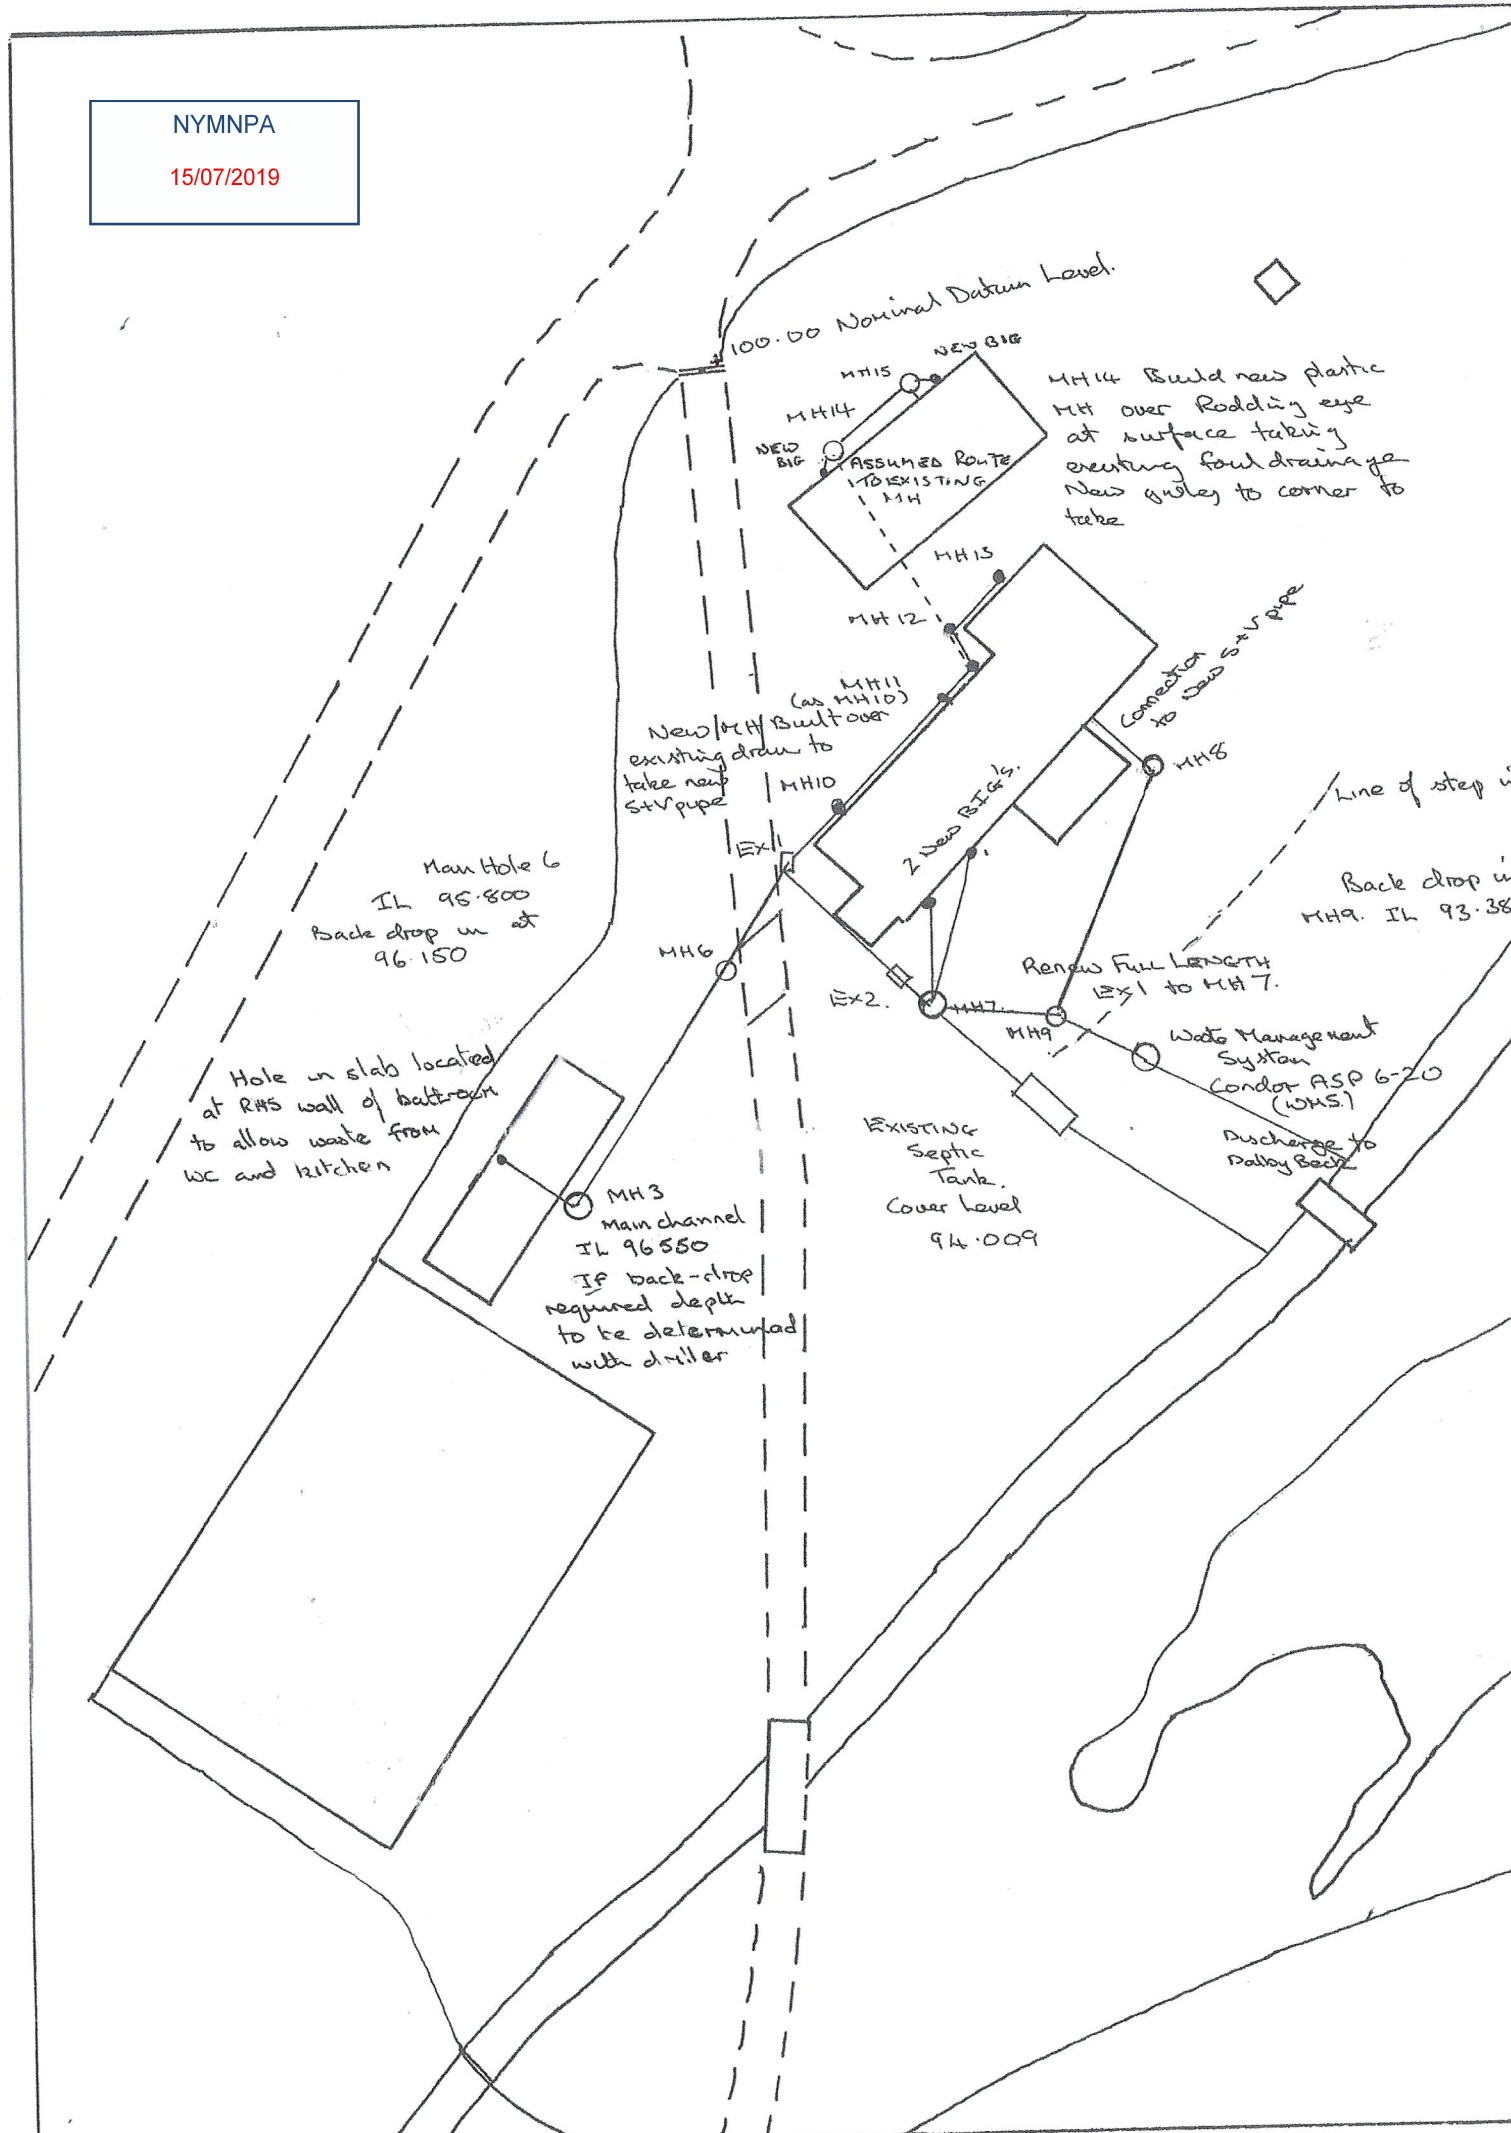 NYMNPA
15/07/2019
100.00 Nominal Datum Level.
NEW BIG
MH15
MH14
NEW
BIG
ASSUMED ROUTE
TO EXISTING
MH
MH14 Build new plastic
MH over Rodding eye
at surface taking
existing foul drainage
New gulley to corner to
take
MH13
MH12
MH11
(as MH10)
New MH Built over
existing drain to
take new
S+V pipe
MH10
Connection
to New S+V pipe
MH8
2 New B.I.G's.
Line of step
Ex1
Man Hole 6
IL 95.800
Back drop in at
96.150
MH6
Back drop
MH9. IL 93.38
Renew FULL LENGTH
Ex1 to MH7.
Ex2.
MH7.
MH9
Waste Management
System
Condor ASP 6-20
(WMS.)
Discharge to
Dalby Beck
Hole in slab located
at RHS wall of bathroom
to allow waste from
WC and kitchen
EXISTING
Septic
Tank.
Cover Level
94.009
MH3
Main channel
IL 96550
If back-drop
required depth
to be determined
with driller